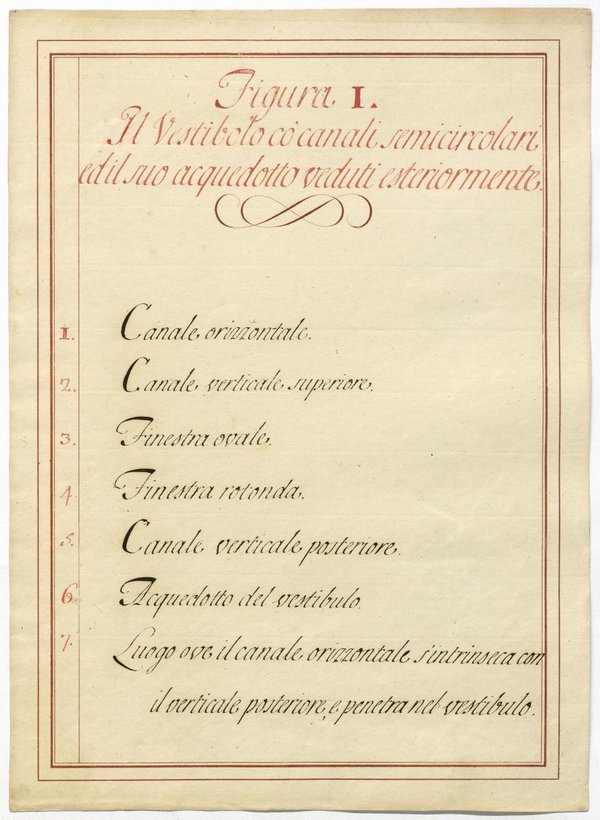 Figura. I.
Il Vestibolo co' canali semicircolari
ed il suo acquedotto veduti esteriormente.
1. Canale orizzontale.
2. Canale verticale superiore.
3. Finestra ovale.
4 Finestra rotonda.
5. Canale verticale posteriore.
6. Acquedotto del vestibulo.
7. Luogo ove il canale orizzontale s'intrinseca con
il verticale posteriore, e penetra nel vestibulo.